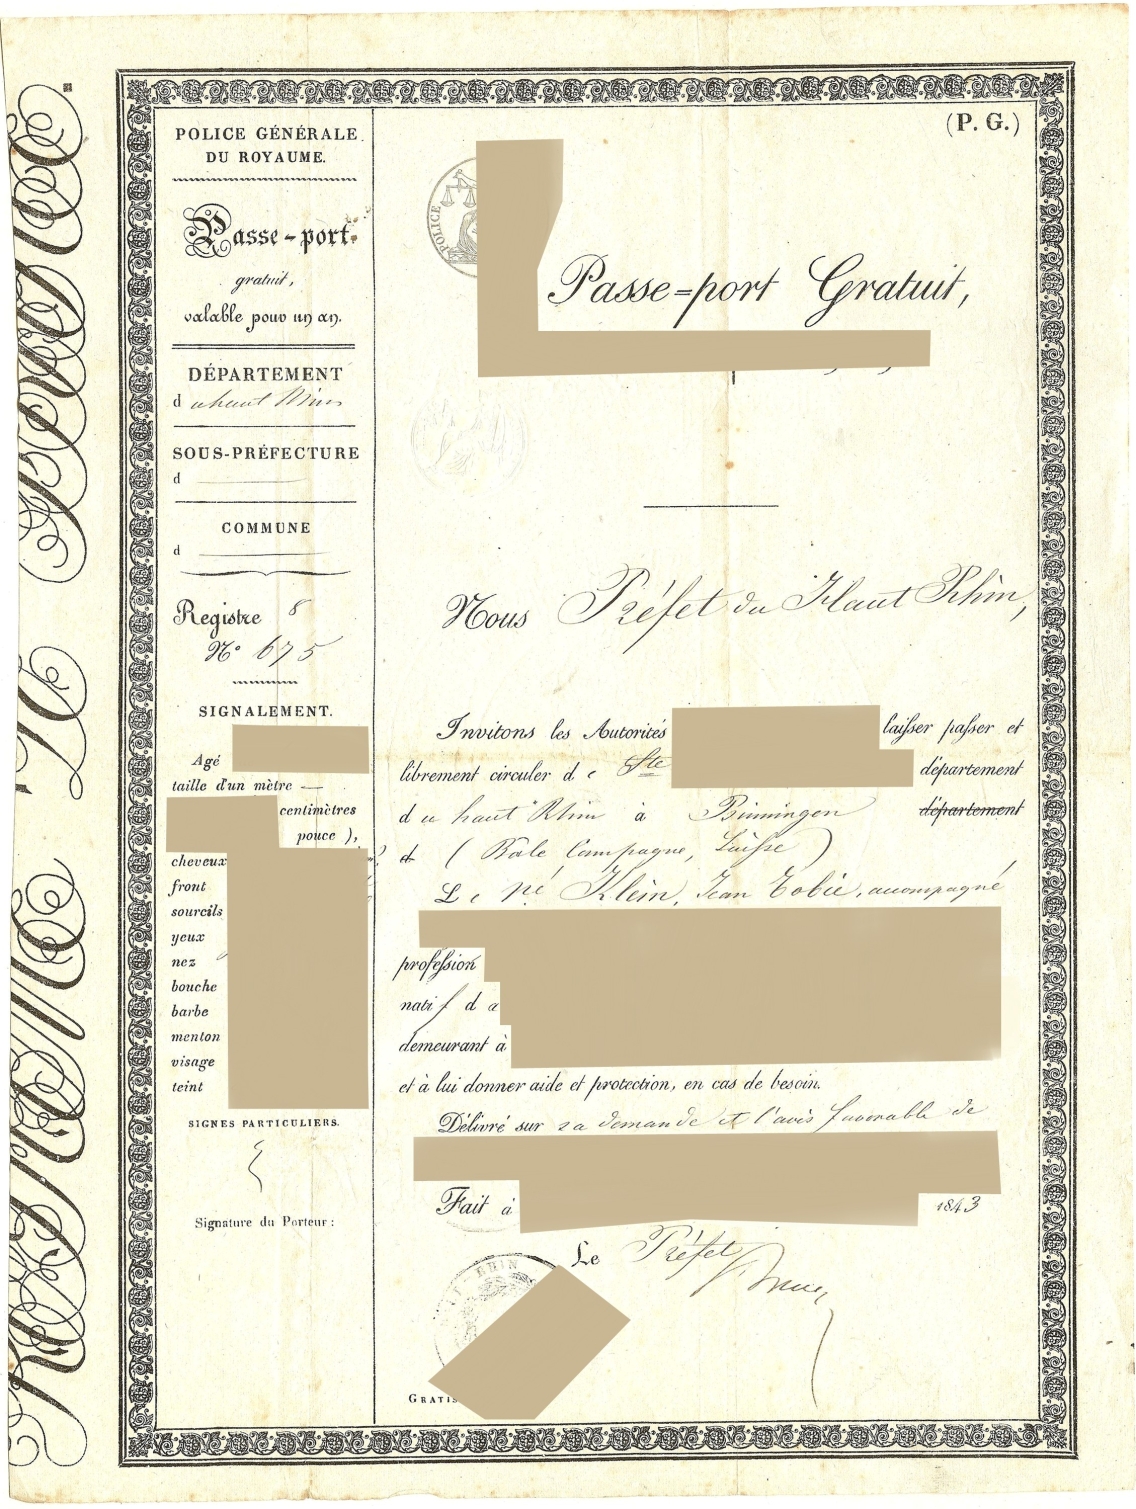 ROYAUME DE FRANCE.
POLICE GÉNÉRALE
DU ROYAUME.
Passe-port
gratuit,
valable pour un an.
DÉPARTEMENT
d u haut Rhin
SOUS-PRÉFECTURE
d
COMMUNE
d
Registre 8
N° 675
SIGNALEMENT.
Agé
taille d'un mètre —
centimètres
pouce ),
cheveux
front
sourcils
yeux
nez
bouche
barbe
menton
visage
teint
SIGNES PARTICULIERS.
Signature du Porteur :
(P. G.)
POLICE
Passe-port Gratuit,
Nous Préfet du Haut Rhin,
Invitons les Autorités laisser passer et
librement circuler d e Ste département
d u haut Rhin à Binningen département
d (Bale Campagne, Suisse)
Le né Klein, Jean Tobie, accompagné
profession
natif d a
demeurant à
et à lui donner aide et protection, en cas de besoin.
Délivré sur sa demande et l'avis favorable de
Fait à 1843
Le Préfet
RHIN
GRATIS